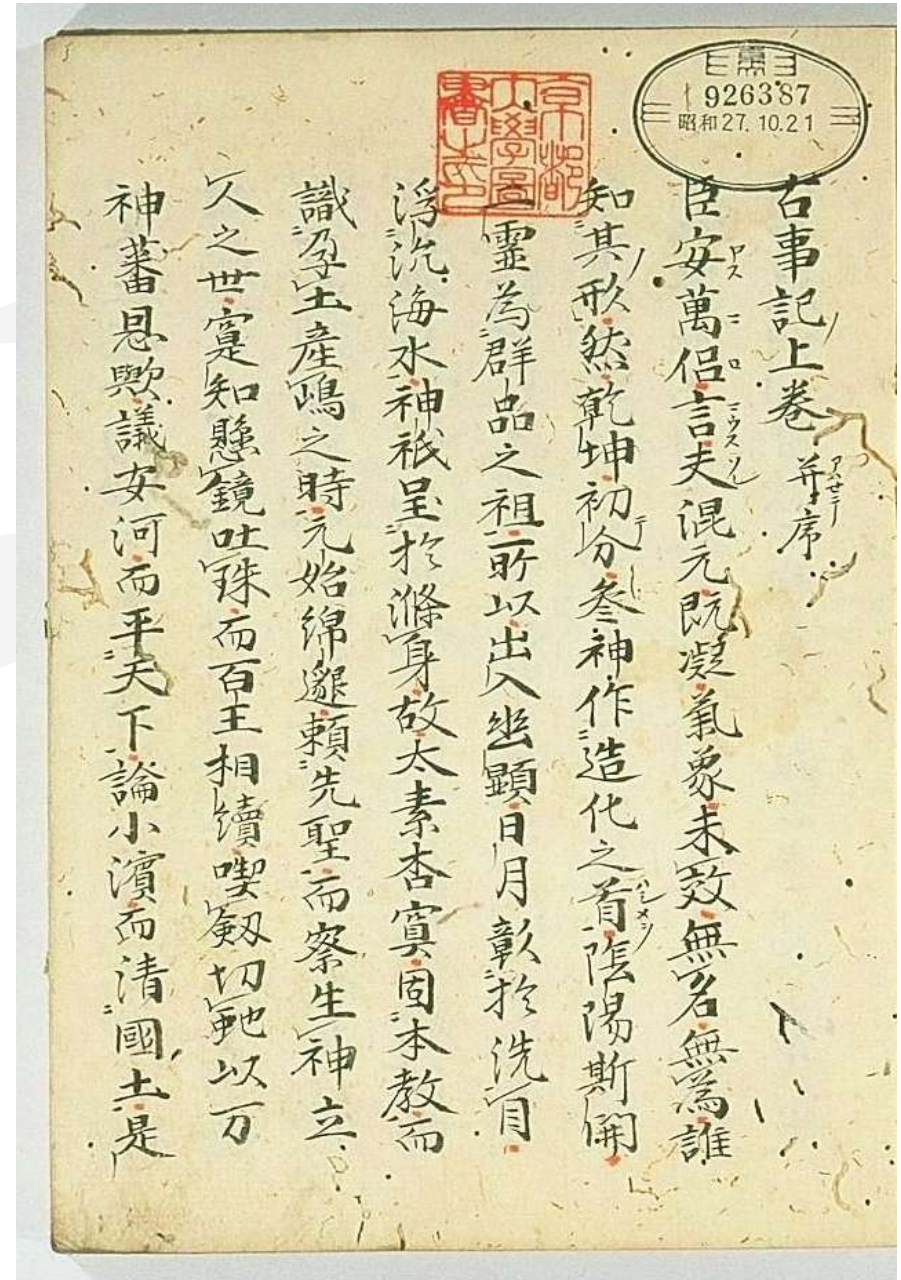 926387
昭和27.10.21
京都
大學圖
書之印
古事記上巻 并序
臣安萬侣言夫混元既凝氣象未效無名無為誰
知其形然乾坤初分叅神作造化之首陰陽斯開
二靈為群品之祖所以出入幽顕日月彰於洗目
浮沉海水神祇呈於滌身故太素杳冥因本教而
識孕土産嶋之時元始綿邈頼先聖而察生神立
人之世寔知懸鏡吐珠而百王相續喫釼切虵以万
神蕃息歟議安河而平天下論小濱而清國土是